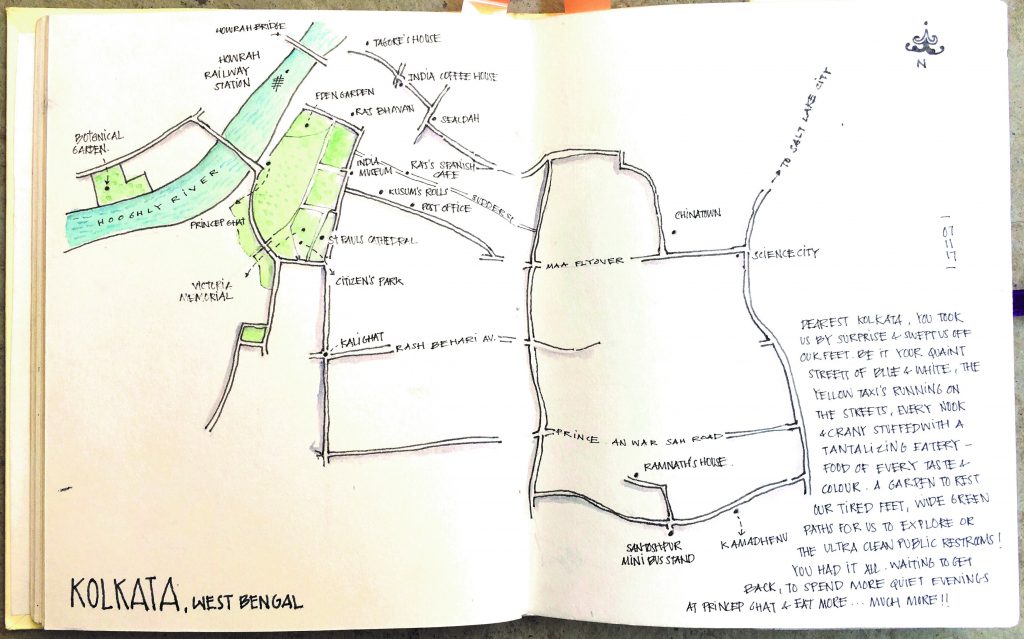 HOWRAH BRIDGE
HOWRAH
RAILWAY
STATION
TAGORE'S HOUSE
INDIA COFFEE HOUSE
EDEN GARDEN
RAJ BHAVAN
SEALDAH
BOTANICAL
GARDEN
HOOGHLY RIVER
INDIA
MUSEUM
RAJ'S SPANISH
CAFE
KUSUM'S ROLLS
SUDDER ST.
POST OFFICE
PRINCEP GHAT
ST PAULS CATHEDRAL
VICTORIA
MEMORIAL
CITIZEN'S PARK
KALIGHAT
RASH BEHARI AV.
KOLKATA, WEST BENGAL
N
TO SALT LAKE CITY
CHINATOWN
SCIENCE CITY
MAA FLYOVER
PRINCE ANWAR SAH ROAD
RAMNATH'S HOUSE
SANTOSHPUR
MINI BUS STAND
KAMADHENU
07
11
17
DEAREST KOLKATA, YOU TOOK
US BY SURPRISE & SWEPT US OFF
OUR FEET. BE IT YOUR QUAINT
STREETS OF BLUE & WHITE, THE
YELLOW TAXI'S RUNNING ON
THE STREETS, EVERY NOOK
& CRANY STUFFED WITH A
TANTALIZING EATERY –
FOOD OF EVERY TASTE &
COLOUR. A GARDEN TO REST
OUR TIRED FEET, WIDE GREEN
PATHS FOR US TO EXPLORE OR
THE ULTRA CLEAN PUBLIC RESTROOMS!
YOU HAD IT ALL. WAITING TO GET
BACK, TO SPEND MORE QUIET EVENINGS
AT PRINCEP GHAT & EAT MORE... MUCH MORE!!